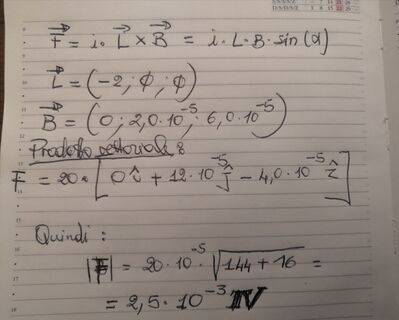 F⃗ = i · L⃗ × B⃗ = i · L · B · sin(α)
L⃗ = (-2; ϕ; ϕ)
B⃗ = (0; 2,0·10⁻⁵; 6,0·10⁻⁵)
Prodotto vettoriale:
F = 20 · [0î + 12·10⁻⁵ ĵ − 4,0·10⁻⁵ ẑ]
Quindi:
|F| = 20 · 10⁻⁵ · √(144 + 16) =
= 2,5 · 10⁻³ N